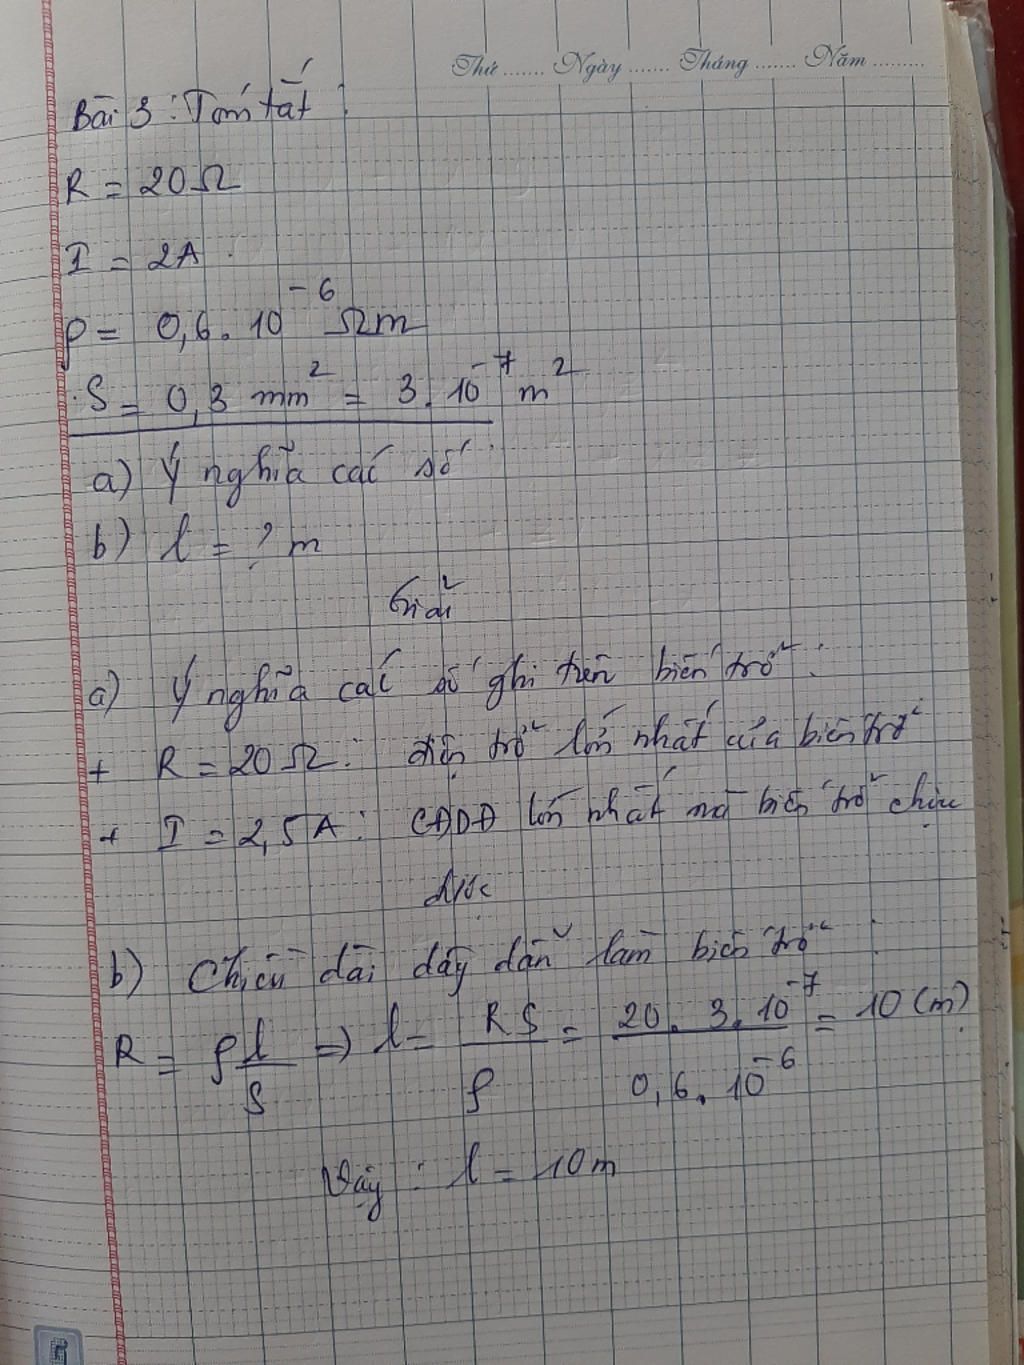 Thứ ....... Ngày ....... Tháng ....... Năm .........
Bài 3 : Tóm tắt :
R = 20Ω
I = 2A
ρ = 0,6 . 10⁻⁶ Ωm
S = 0,3 mm² = 3 . 10⁻⁷ m²
a) Ý nghĩa các số
b) l = ? m
Giải
a) Ý nghĩa các số ghi trên biến trở :
+ R = 20Ω : điện trở lớn nhất của biến trở
+ I = 2,5A : CĐDĐ lớn nhất mà biến trở chịu
được
b) Chiều dài dây dẫn làm biến trở :
R = ρ l/S => l = RS/ρ = 20 . 3 . 10⁻⁷ / 0,6 . 10⁻⁶ = 10 (m)
Vậy : l = 10m